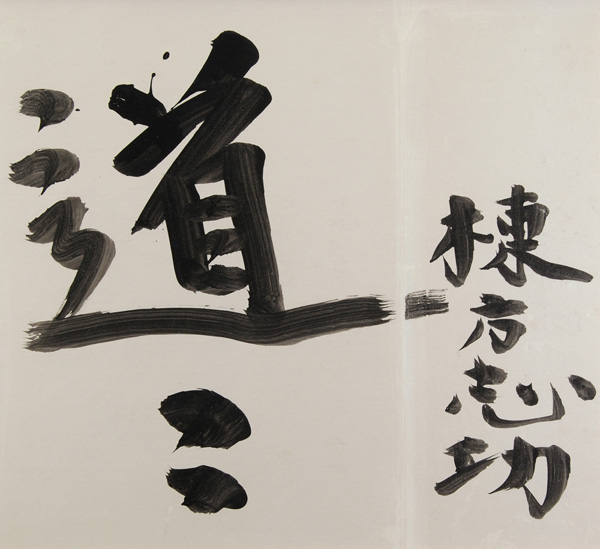 棟方志功
道〻